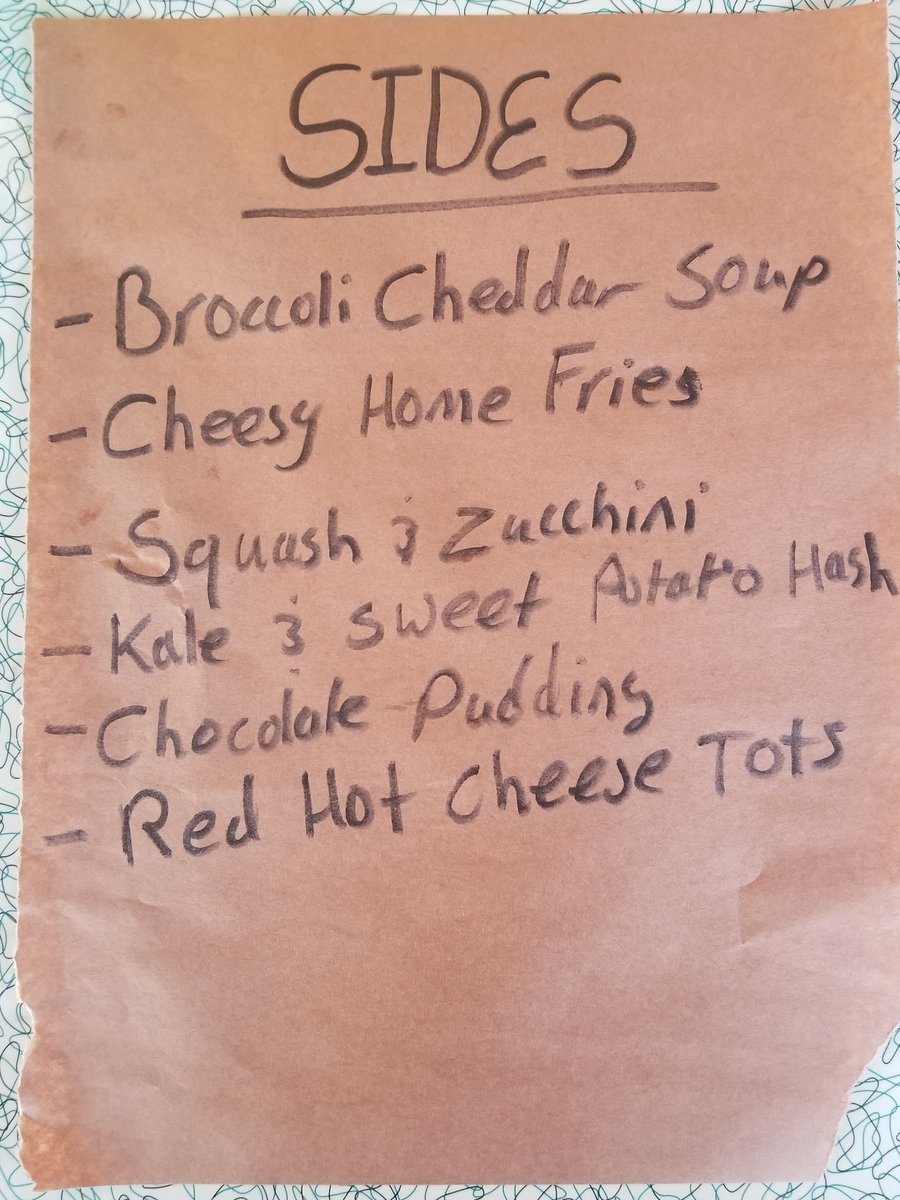 SIDES
- Broccoli Cheddar Soup
- Cheesy Home Fries
- Squash & Zucchini
- Kale & Sweet Potato Hash
- Chocolate Pudding
- Red Hot Cheese Tots